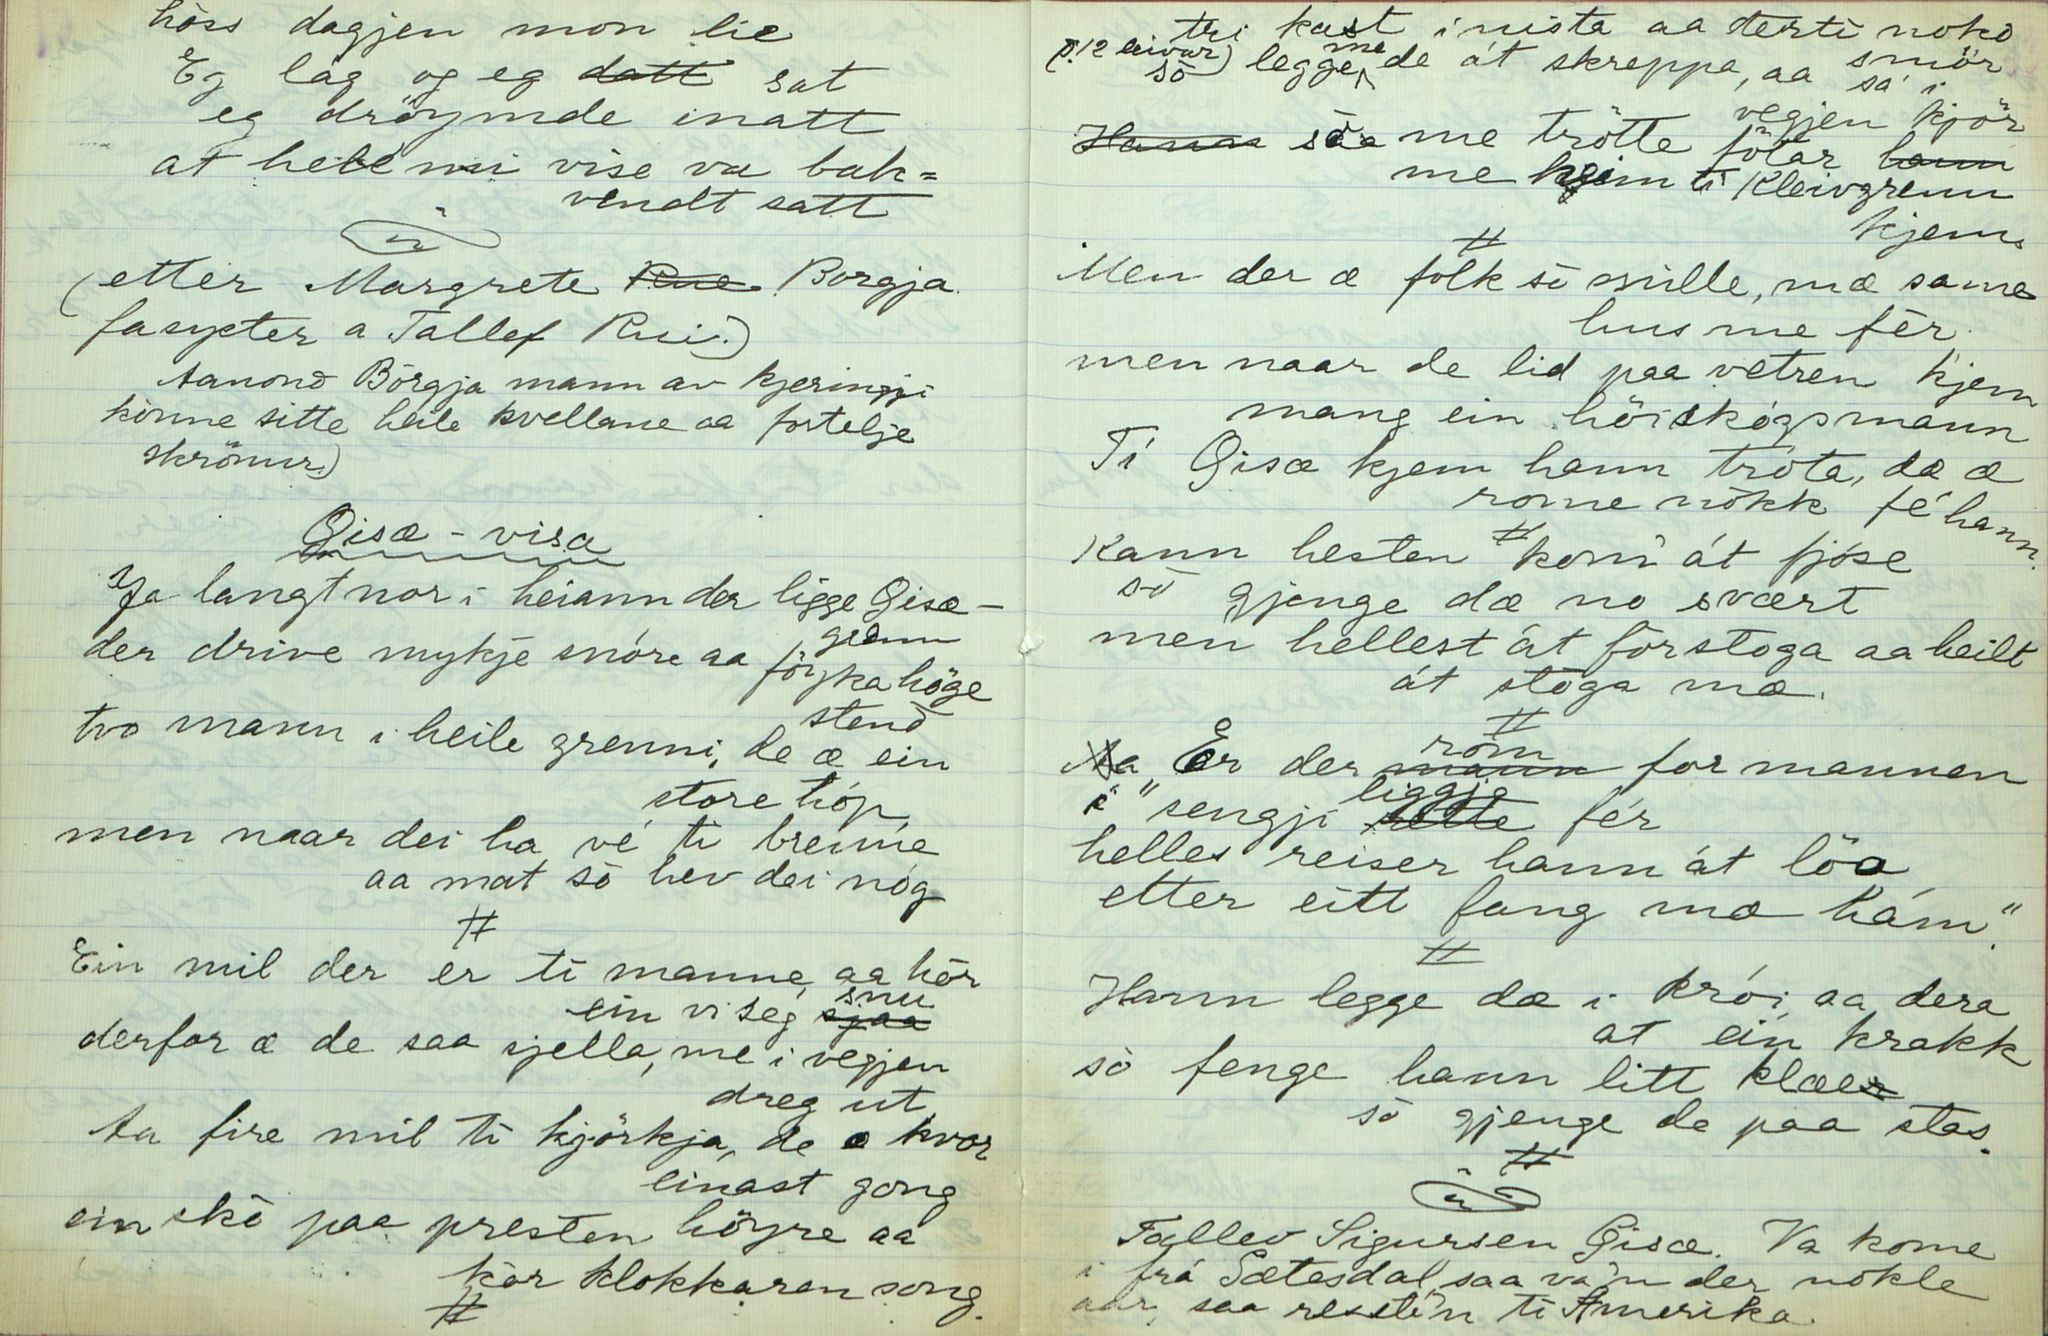 hòss dagjen mon lie
Eg låg og eg datt sat
eg dröymde inatt
at heile mi vise va bak=
vendt satt
(etter Margrete Rue Borgja
fasyster a Tallef Rui.)
Aanond Börgja mann av kjeringji
kònne sitte heile kvellane aa fortelje
skrönur.)
Gisæ - visa
Ja langt nor i heiann der ligge Gisæ-
grenn
der drive mykje snóre aa föyka höge
stend
two mann i heile grenni, de æ ein
store hóp
men naar dei ha vé ti brenne
aa mat sò hev dei nóg
#
Ein mil der er ti manne aa hòr
ein vi seg sjaa snu
derfor æ de saa sjella, me i vegjen
dreg ut
Aa fire mil ti kjörkja, de æ kvar
einast gong
ein skò paa presten höyre aa
kòr klokkaren song.
#
tri kast i nista aa terti noko
smör
(p. 12 leivur) sò legge me de át skreppa, aa så i
vegjen kjör
Hann sòo me trötte fötar hann
me heim ti Kleivgrenn
kjem.
#
Men der æ folk sò snille, mæ same
hus me fér
men naar de lid paa vetren kjem
mang ein höiskógsmann
Ti Gisæ kjem hann tróta, dæ æ
rome nòkk fé hann.
#
Kann hesten kom át fjóse
sò gjenge dæ no svært
men hellest át forstoga aa heilt
át stòga mæ.
#
Aa "Er der mann ròm for mannen
i" sengji rette liggja fér
helles reiser hann át löa
etter eitt fang mæ hám."
#
Hann legge dæ i krói aa dera
at ein krakk
sò fenge hann litt klæer
sò gjenge de paa stas.
#
Tallev Sigursen Gisæ. Va kome
i frå Sætesdal, saa va'n der nokle
aar, saa reiste'n ti Amerika.